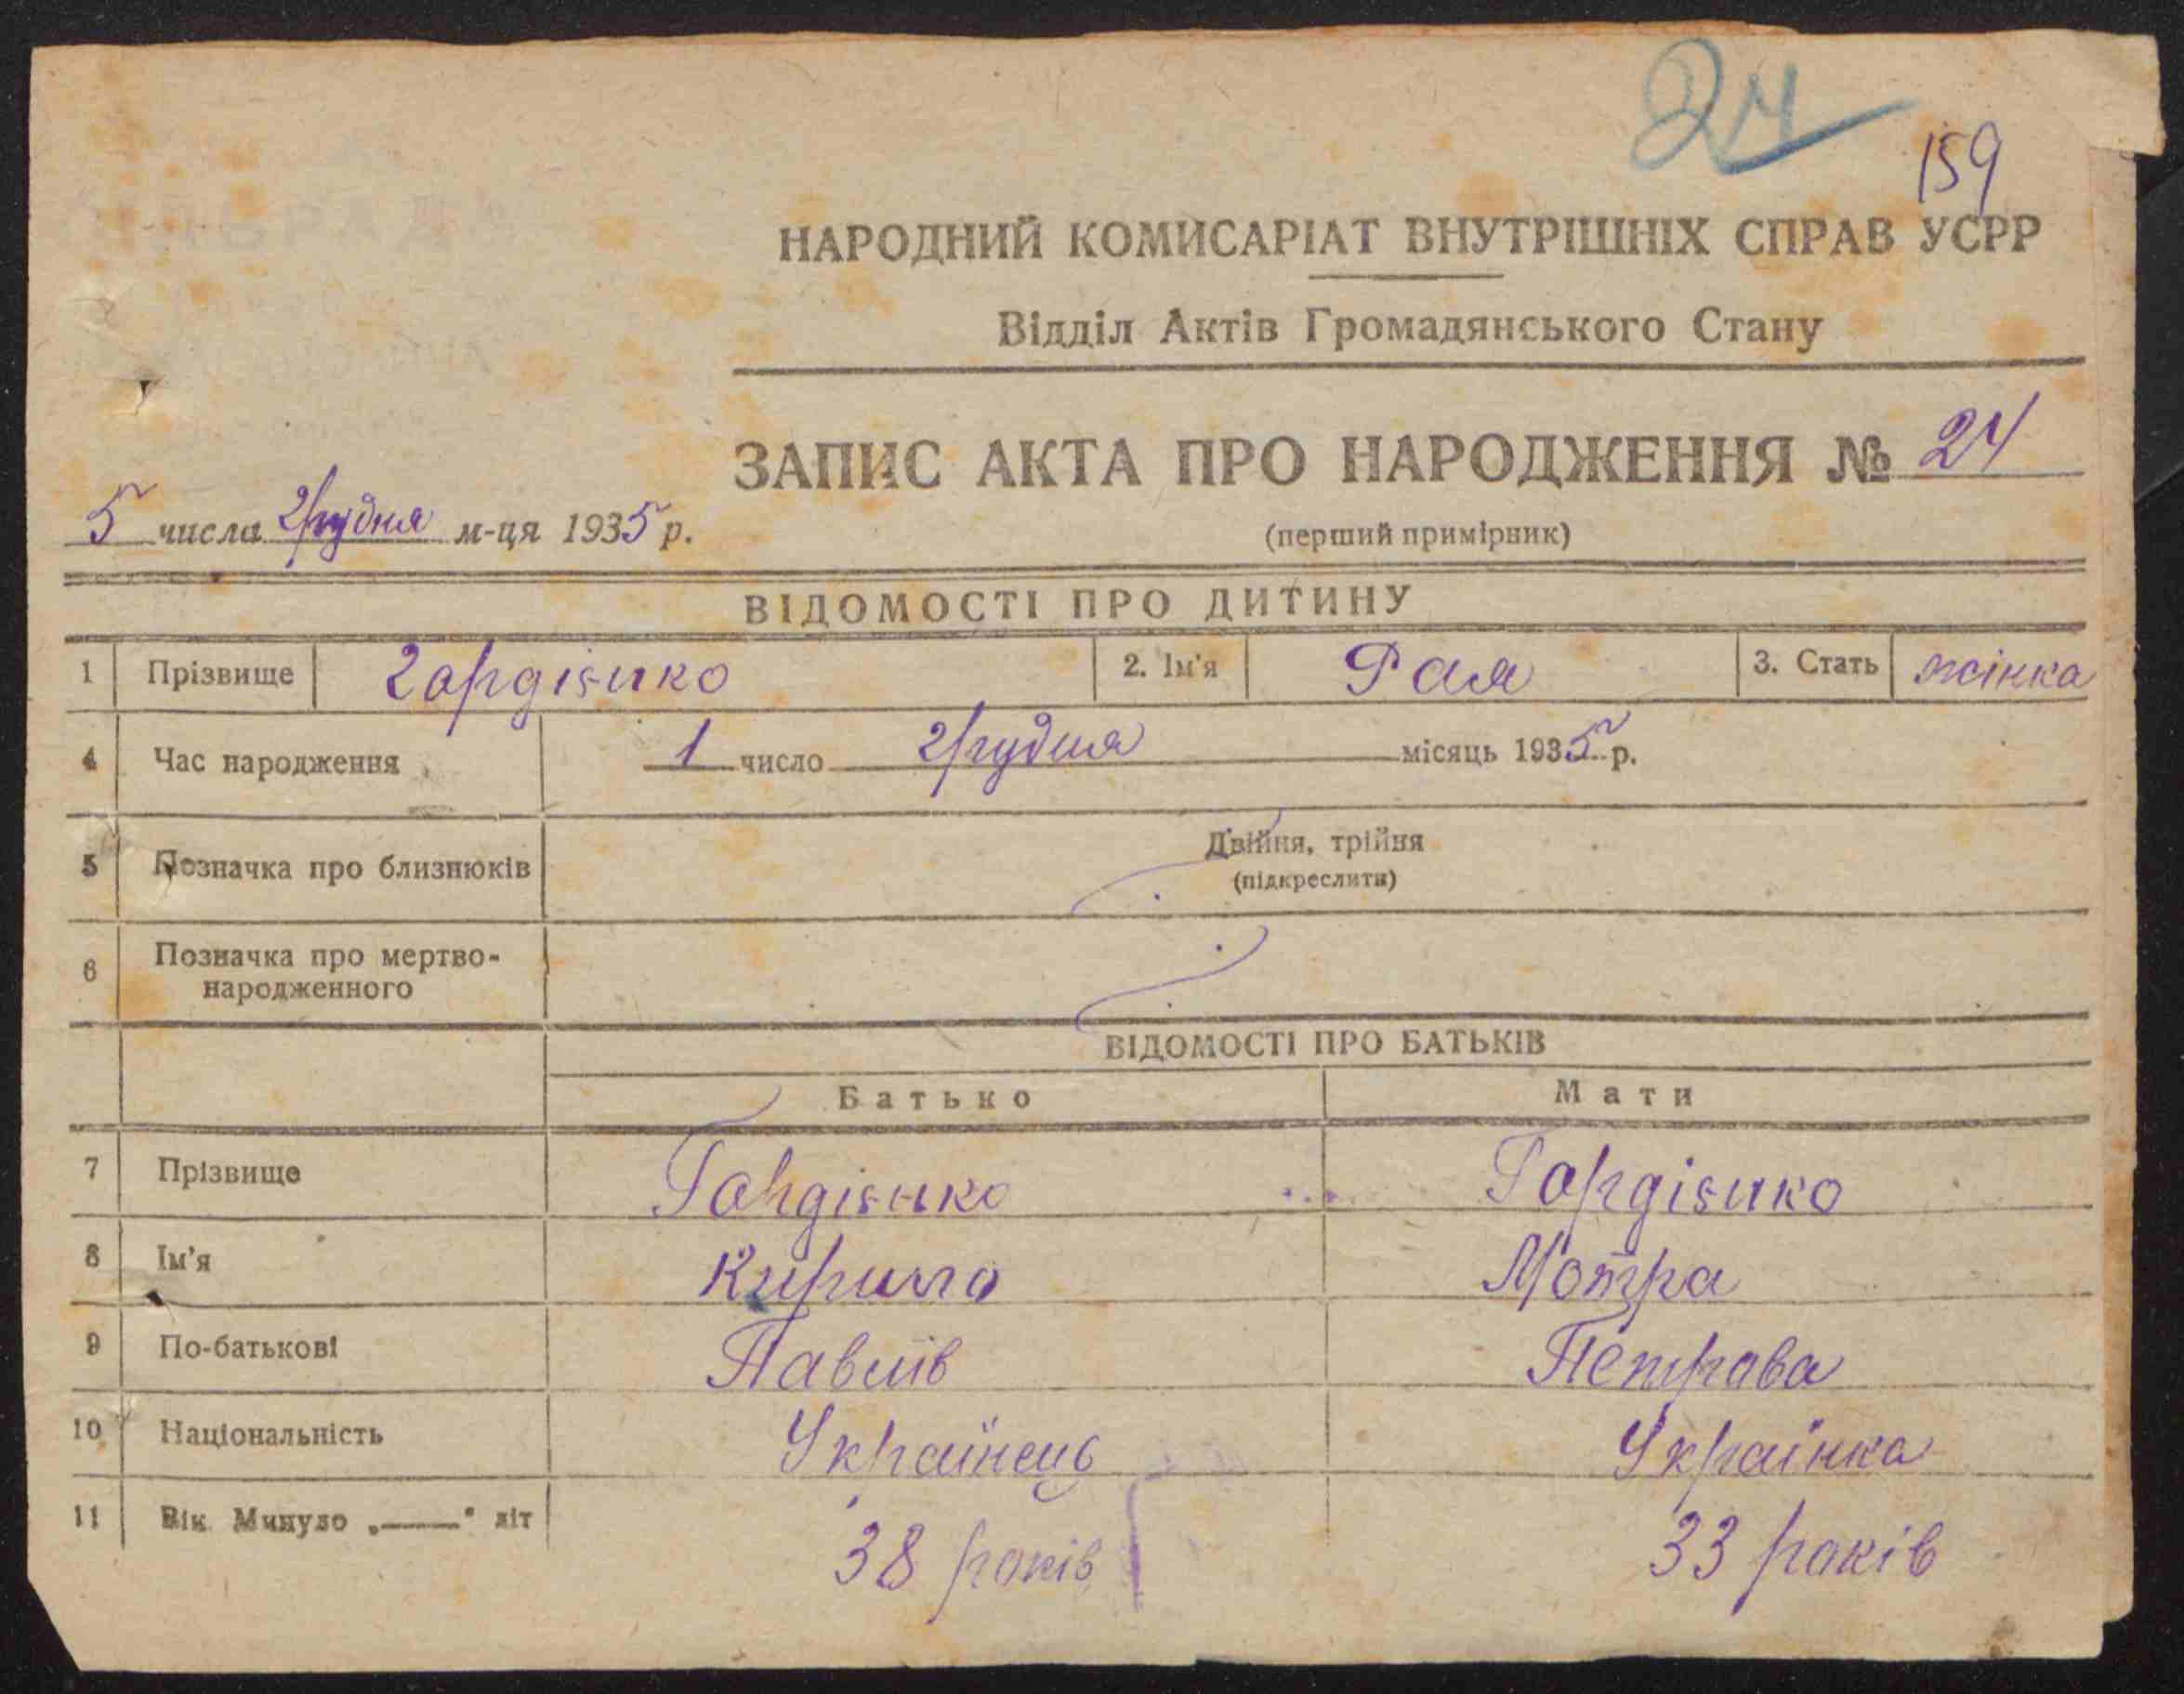 24
159
НАРОДНИЙ КОМИСАРІАТ ВНУТРІШНІХ СПРАВ УСРР
Відділ Актів Громадянського Стану
ЗАПИС АКТА ПРО НАРОДЖЕННЯ № 24
5 числа грудня м-ця 1935 р.
(перший примірник)
ВІДОМОСТІ ПРО ДИТИНУ
1 Прізвище Гордієнко 2. Ім'я Рая 3. Стать жінка
4 Час народження 1 число грудня місяць 1935 р.
5 Позначка про близнюків Двійня, трійня
(підкреслити)
6 Позначка про мертво-
народженного
ВІДОМОСТІ ПРО БАТЬКІВ
Батько Мати
7 Прізвище Гордієнко Гордієнко
8 Ім'я Кирило Мотра
9 По-батькові Павлів Петрова
10 Національність Українець Українка
11 Вік Минуло „——" літ 38 років 33 років